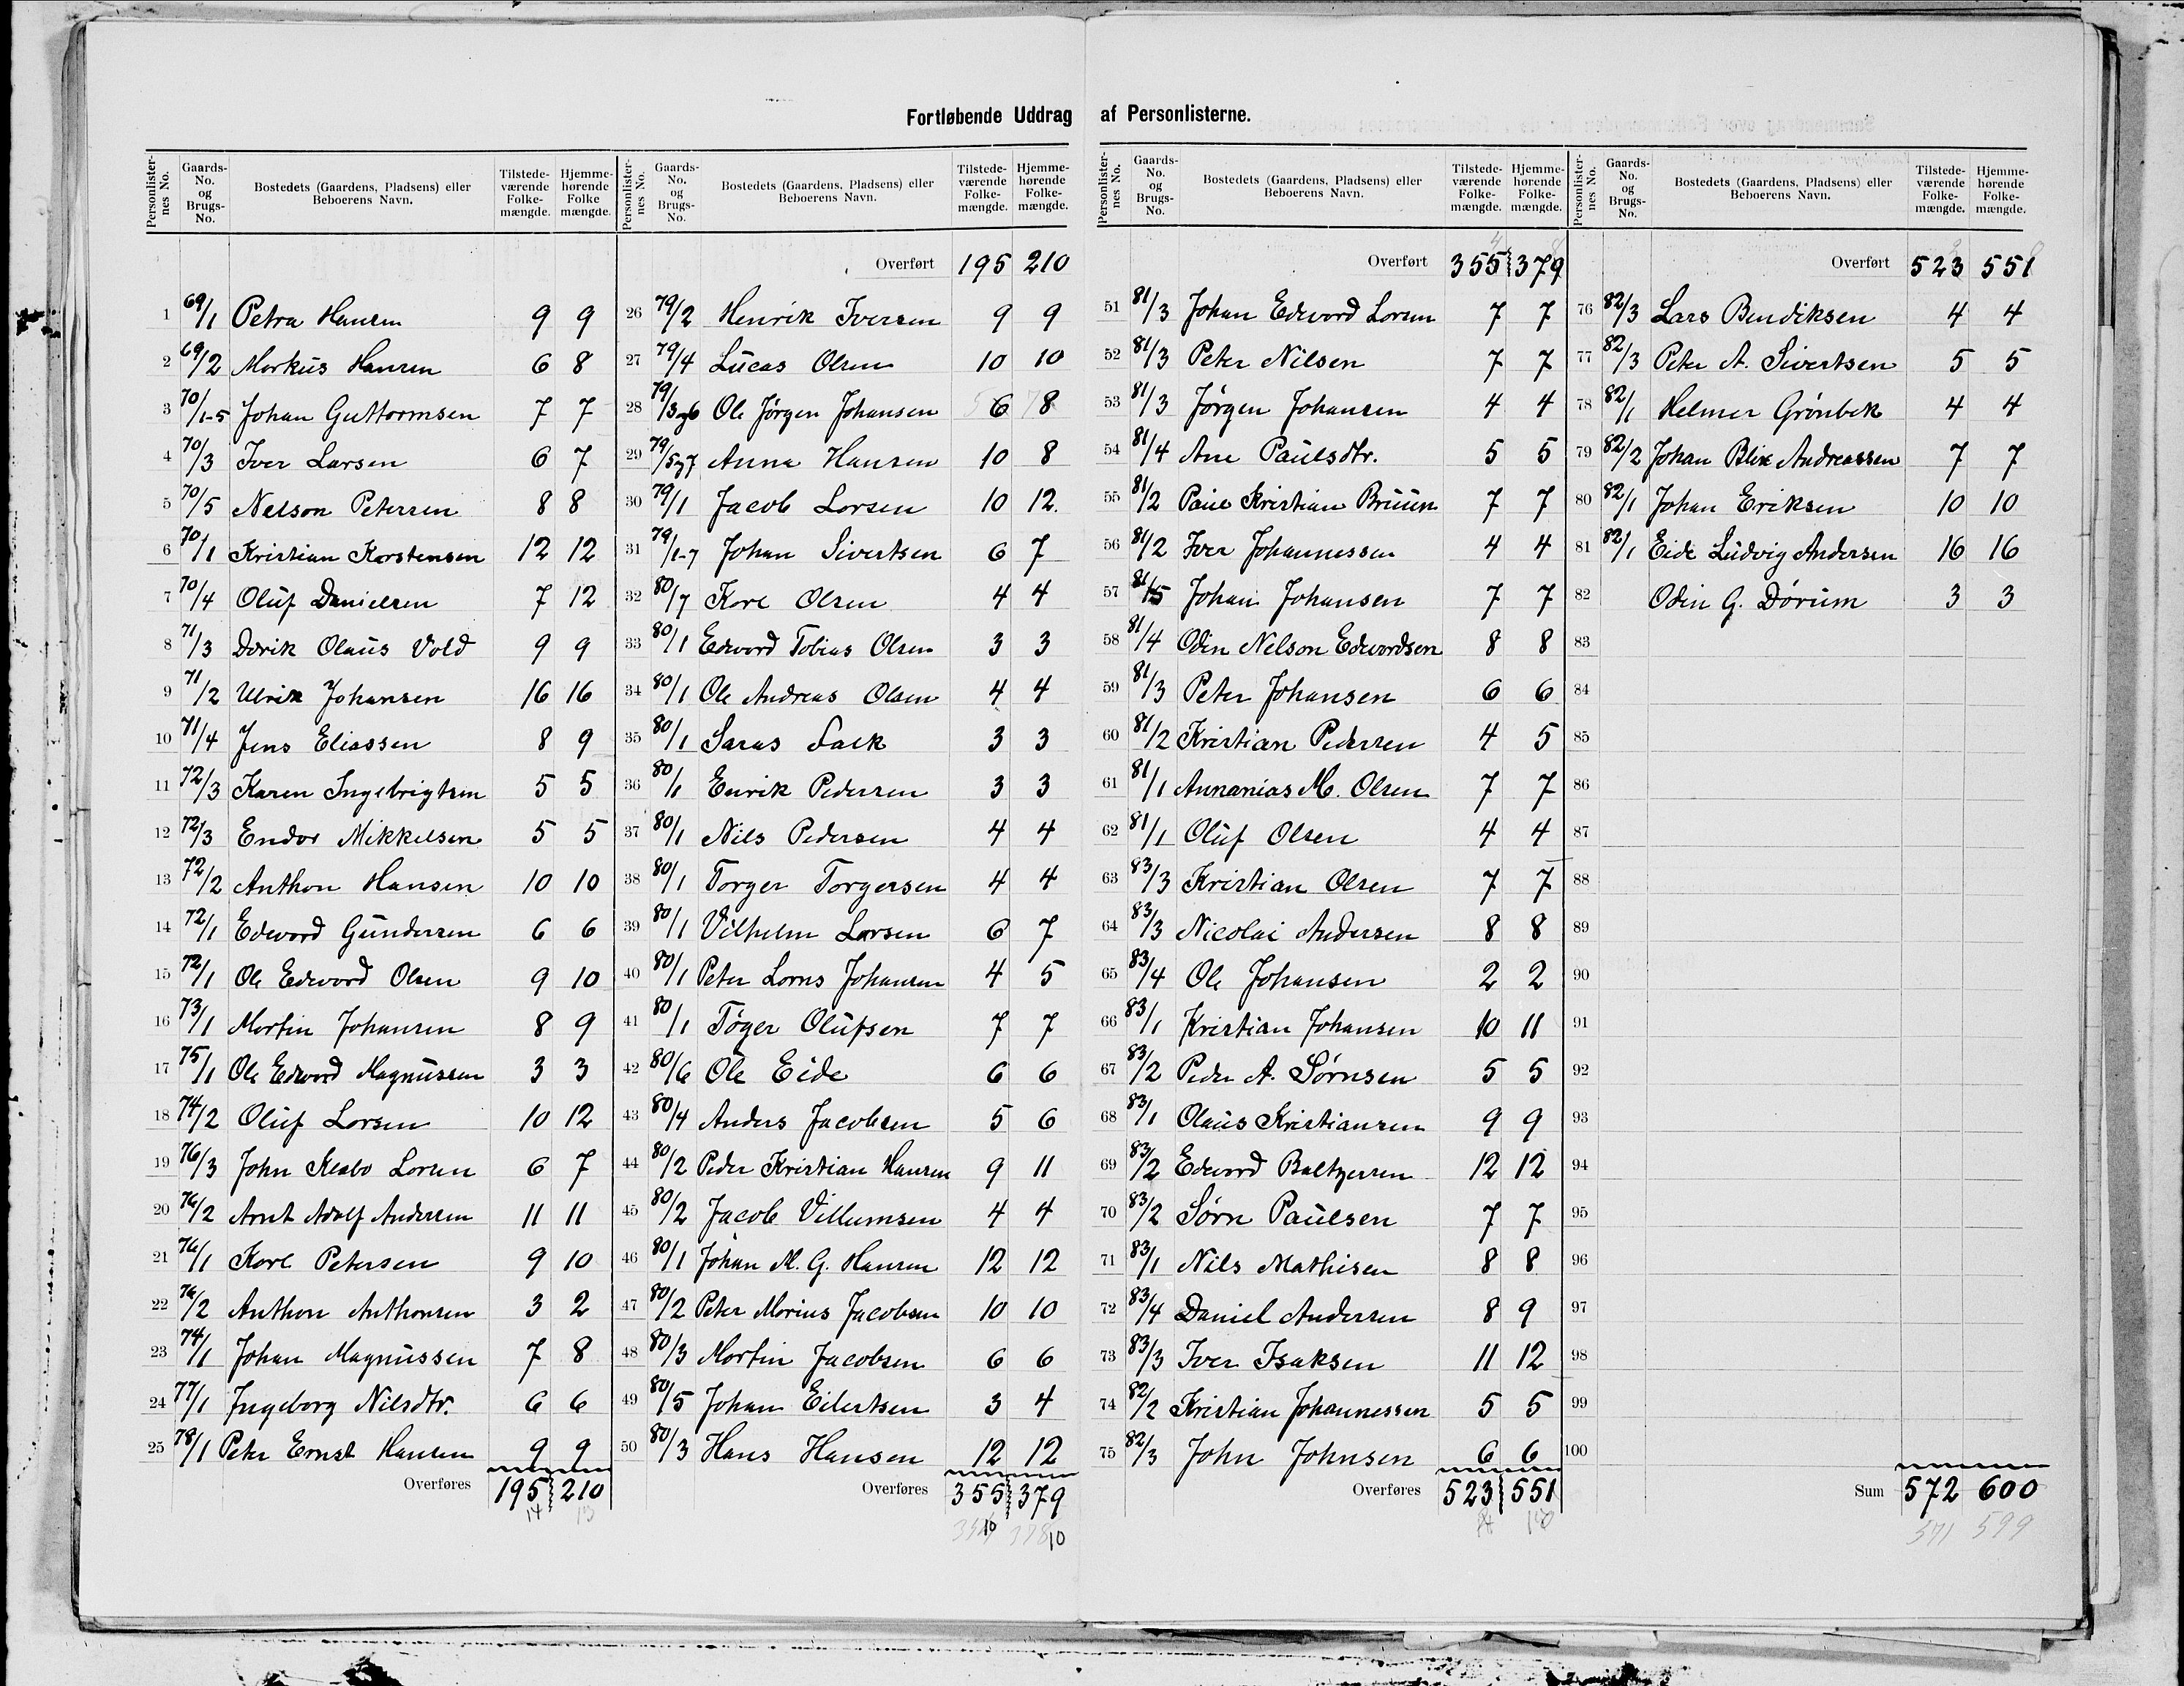 Fortløbende Uddrag af Personlisterne.
Personlister-nes No. Gaards-No. og Brugs-No. Bostedets (Gaardens, Pladsens) eller Beboerens Navn. Tilstede-værende Folke-mængde. Hjemme-hørende Folke mængde.
1 69/1 Petra Hansen 9 9
2 69/2 Markus Hansen 6 8
3 70/1-5 Johan Guttormsen 7 7
4 70/3 Iver Larsen 6 7
5 70/5 Nelson Petersen 8 8
6 70/1 Kristian Karstensen 12 12
7 70/4 Oluf Danielsen 7 12
8 71/3 Dorik Olaus Vold 9 9
9 71/2 Ulrik Johansen 16 16
10 71/4 Jens Eliassen 8 9
11 72/3 Karen Ingebrigtsen 5 5
12 72/3 Endor Mikkelsen 5 5
13 72/2 Anthon Hansen 10 10
14 72/1 Edvard Gundersen 6 6
15 72/1 Ole Edvard Olsen 9 10
16 73/1 Martin Johansen 8 9
17 75/1 Ole Edvard Magnussen 3 3
18 74/2 Oluf Larsen 10 12
19 76/3 John Klabo Lorsen 6 7
20 76/2 Arnt Adolf Andersen 11 11
21 76/1 Karl Petersen 9 10
22 76/2 Anthon Anthonsen 3 2
23 74/1 Johan Magnussen 7 8
24 77/1 Ingeborg Nilsdtr. 6 6
25 78/1 Peter Ernst Hansen 9 9
Overføres 195 210
14 13
Personlister-nes No. Gaards-No. og Brugs-No. Bostedets (Gaardens, Pladsens) eller Beboerens Navn. Tilstede-værende Folke-mængde. Hjemme-hørende Folke-mængde.
Overført 195 210
26 79/2 Henrik Iversen 9 9
27 79/4 Lucas Olsen 10 10
28 79/3og6 Ole Jørgen Johansen 6 8
29 79/5og7 Anna Hansen 10 8
30 79/1 Jacob Larsen 10 12.
31 79/1-7 Johan Sivertsen 6 7
32 80/7 Karl Olsen 4 4
33 80/1 Edvard Tobias Olsen 3 3
34 80/1 Ole Andreas Olsen 4 4
35 80/1 Saras Falk 3 3
36 80/1 Enrik Pedersen 3 3
37 80/1 Nils Pedersen 4 4
38 80/1 Torger Torgersen 4 4
39 80/1 Vilhelm Larsen 6 7
40 80/1 Peter Lorns Johansen 4 5
41 80/1 Tøger Olufsen 7 7
42 80/6 Ole Eide 6 6
43 80/4 Anders Jacobsen 5 6
44 80/2 Peder Kristian Hansen 9 11
45 80/2 Jacob Villumsen 4 4
46 80/1 Johan M. G. Hansen 12 12
47 80/2 Peter Marius Jacobsen 10 10
48 80/3 Martin Jacobsen 6 6
49 80/5 Johan Eilertsen 3 4
50 80/3 Hans Hansen 12 12
Overføres 355 379
354 10 378 10
Personlister-nes No. Gaards-No. og Brugs-No. Bostedets (Gaardens, Pladsens) eller Beboerens Navn. Tilstede-værende Folke-mængde. Hjemme-hørende Folke-mængde.
Overført 355 379
51 81/3 Johan Edvard Lorsen 7 7
52 81/3 Peter Nilsen 7 7
53 81/3 Jørgen Johansen 4 4
54 81/4 Ane Paulsdtr. 5 5
55 81/2 Paul Kristian Bruun 7 7
56 81/2 Iver Johannessen 4 4
57 81/5 Johan Johansen 7 7
58 81/4 Odin Nelson Edvardsen 8 8
59 81/3 Peter Johansen 6 6
60 81/2 Kristian Pedersen 4 5
61 81/1 Annanias M. Olsen 7 7
62 81/1 Oluf Olsen 4 4
63 83/3 Kristian Olsen 7 7
64 83/3 Nicolai Andersen 8 8
65 83/4 Ole Johansen 2 2
66 83/1 Kristian Johansen 10 11
67 83/2 Peder A. Sørnsen 5 5
68 83/1 Olaus Kristiansen 9 9
69 83/2 Edvard Baltzersen 12 12
70 83/2 Sørn Paulsen 7 7
71 83/1 Nils Mathisen 8 8
72 83/4 Daniel Andersen 8 9
73 83/3 Iver Isaksen 11 12
74 82/2 Kristian Johannessen 5 5
75 82/3 John Johnsen 6 6
Overføres 523 551
Personlister-nes No. Gaards-No. og Brugs-No. Bostedets (Gaardens, Pladsens) eller Beboerens Navn. Tilstede-værende Folke-mængde. Hjemme-hørende Folke-mængde.
Overført 523 551
76 82/3 Lars Bendiksen 4 4
77 82/3 Peter A. Sivertsen 5 5
78 82/1 Helmer Grönbek 4 4
79 82/2 Johan Blix Andreassen 7 7
80 82/1 Johan Eriksen 10 10
81 82/1 Eide Ludvig Andersen 16 16
82 Odin G. Dørum 3 3
83
84
85
86
87
88
89
90
91
92
93
94
95
96
97
98
99
100
Sum 572 600
571 599